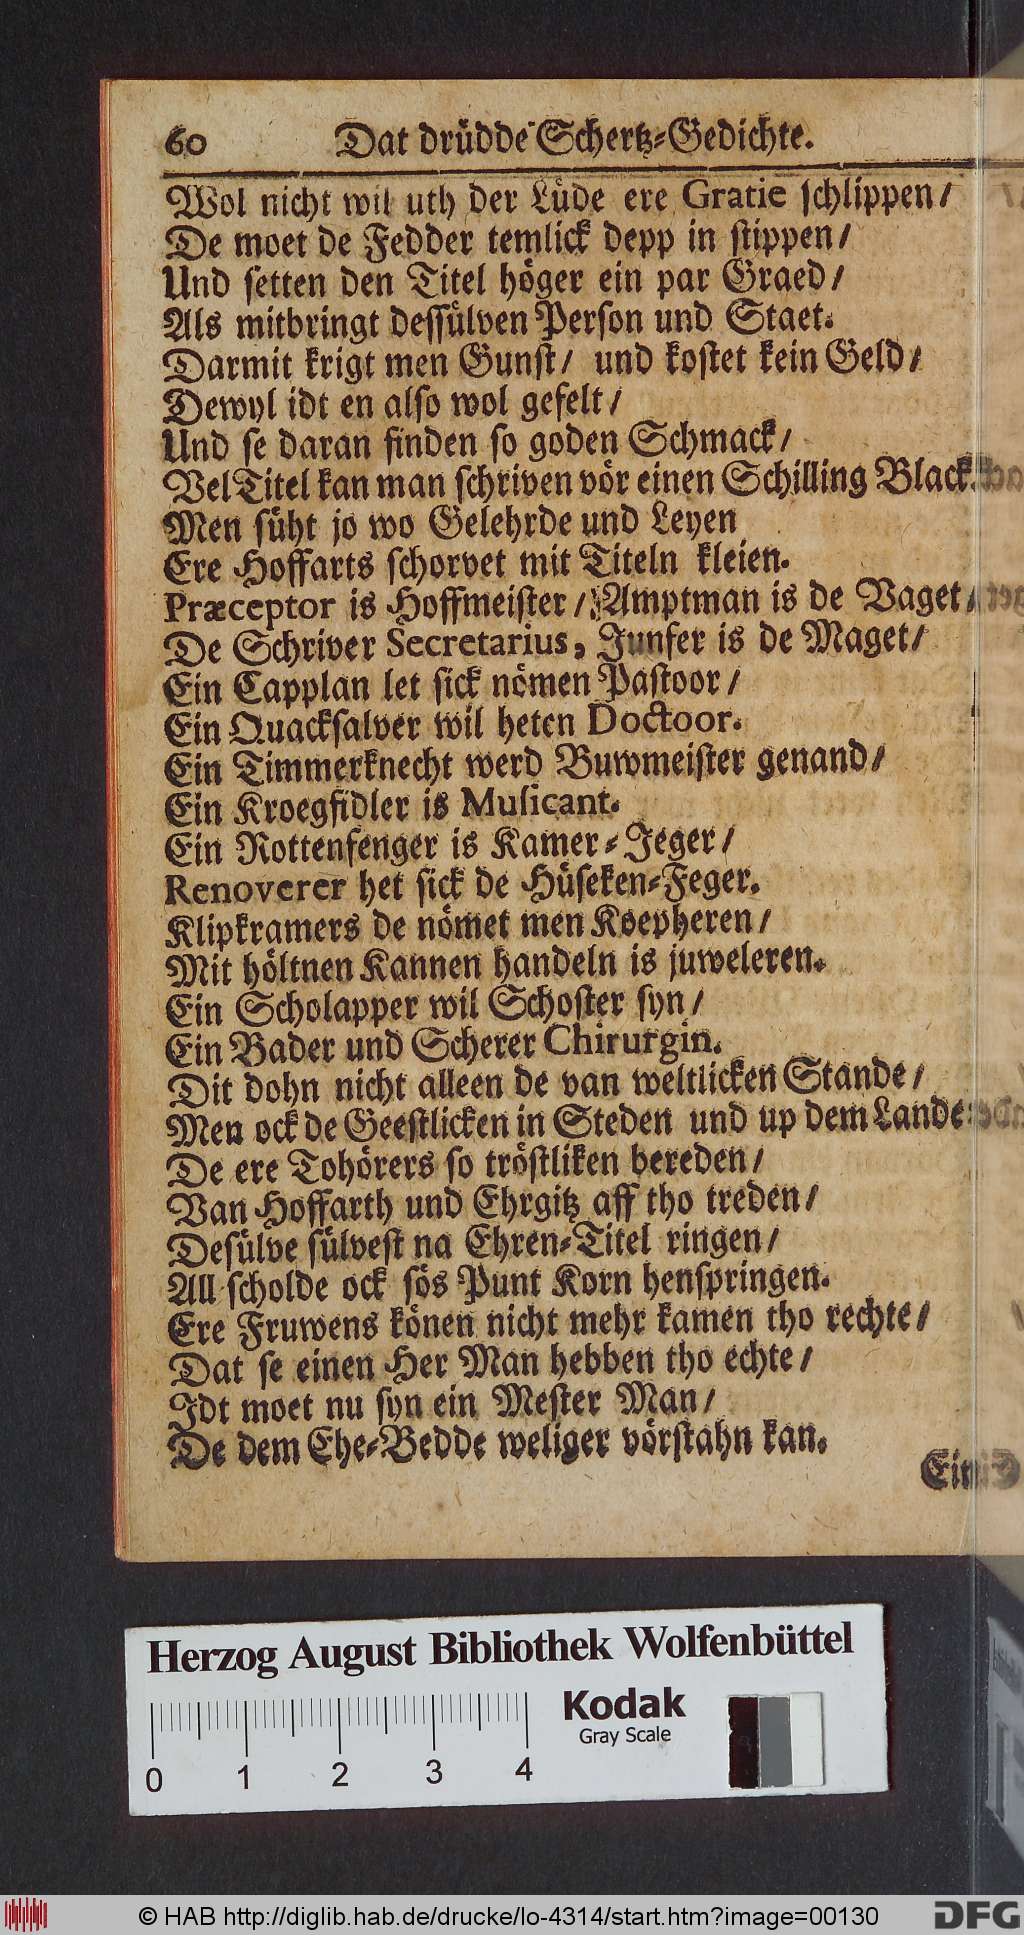 60 Dat drüdde Schertz-Gedichte.
Wol nicht wil uth der Lüde ere Gratie schlippen/
De moet de Fedder temlick depp in stippen/
Und setten den Titel höger ein par Graed/
Als mitbringt dessülven Person und Staet.
Darmit krigt men Gunst/ und kostet kein Geld/
Dewyl idt en also wol gefelt/
Und se daran finden so goden Schmack/
Vel Titel kan man schriven vör einen Schilling Black.
Men süht jo wo Gelehrde und Leyen
Ere Hoffarts schorvet mit Titeln kleien.
Præceptor is Hoffmeister/ Amptman is de Vaget/
De Schriver Secretarius, Junfer is de Maget/
Ein Capplan let sick nömen Pastoor/
Ein Quacksalver wil heten Doctoor.
Ein Timmerknecht werd Buwmeister genand/
Ein Kroegfidler is Musicant.
Ein Rottenfenger is Kamer-Jeger/
Renoverer het sick de Hüseken-Feger.
Klipkramers de nömet men Koepheren/
Mit höltnen Kannen handeln is juweleren.
Ein Scholapper wil Schoster syn/
Ein Bader und Scherer Chirurgin.
Dit dohn nicht alleen de van weltlicken Stande/
Men ock de Geestlicken in Steden und up dem Lande
De ere Tohörers so tröstliken bereden/
Van Hoffarth und Ehrgitz aff tho treden/
Desülve sülvest na Ehren-Titel ringen/
All scholde ock sös Punt Korn henspringen.
Ere Fruwens könen nicht mehr kamen tho rechte/
Dat se einen Her Man hebben tho echte/
Idt moet nu syn ein Mester Man/
De dem Ehe-Bedde weliger vörstahn kan.
Ein
Herzog August Bibliothek Wolfenbüttel
Kodak
Gray Scale
0 1 2 3 4
© HAB http://diglib.hab.de/drucke/lo-4314/start.htm?image=00130
DFG